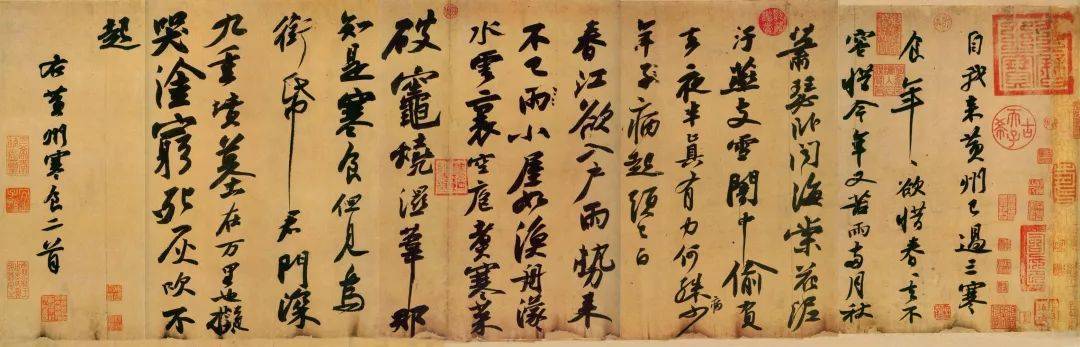 自我来黃州已過三寒
食年〻欲惜春〻去不
容惜今年又苦雨兩月秋
蕭瑟卧聞海棠花泥
汙燕支雪闇中偷負
去夜半真有力何殊病少
年子病起頭已白
春江欲入戶雨勢来
不已雨小屋如漁舟濛〻
水雲裏空庖煑寒菜
破竈燒濕葦那
知是寒食但見烏
銜帋君門深
九重墳墓在万里也擬
哭塗窮死灰吹不
起
右黄州寒食二首
古希天子